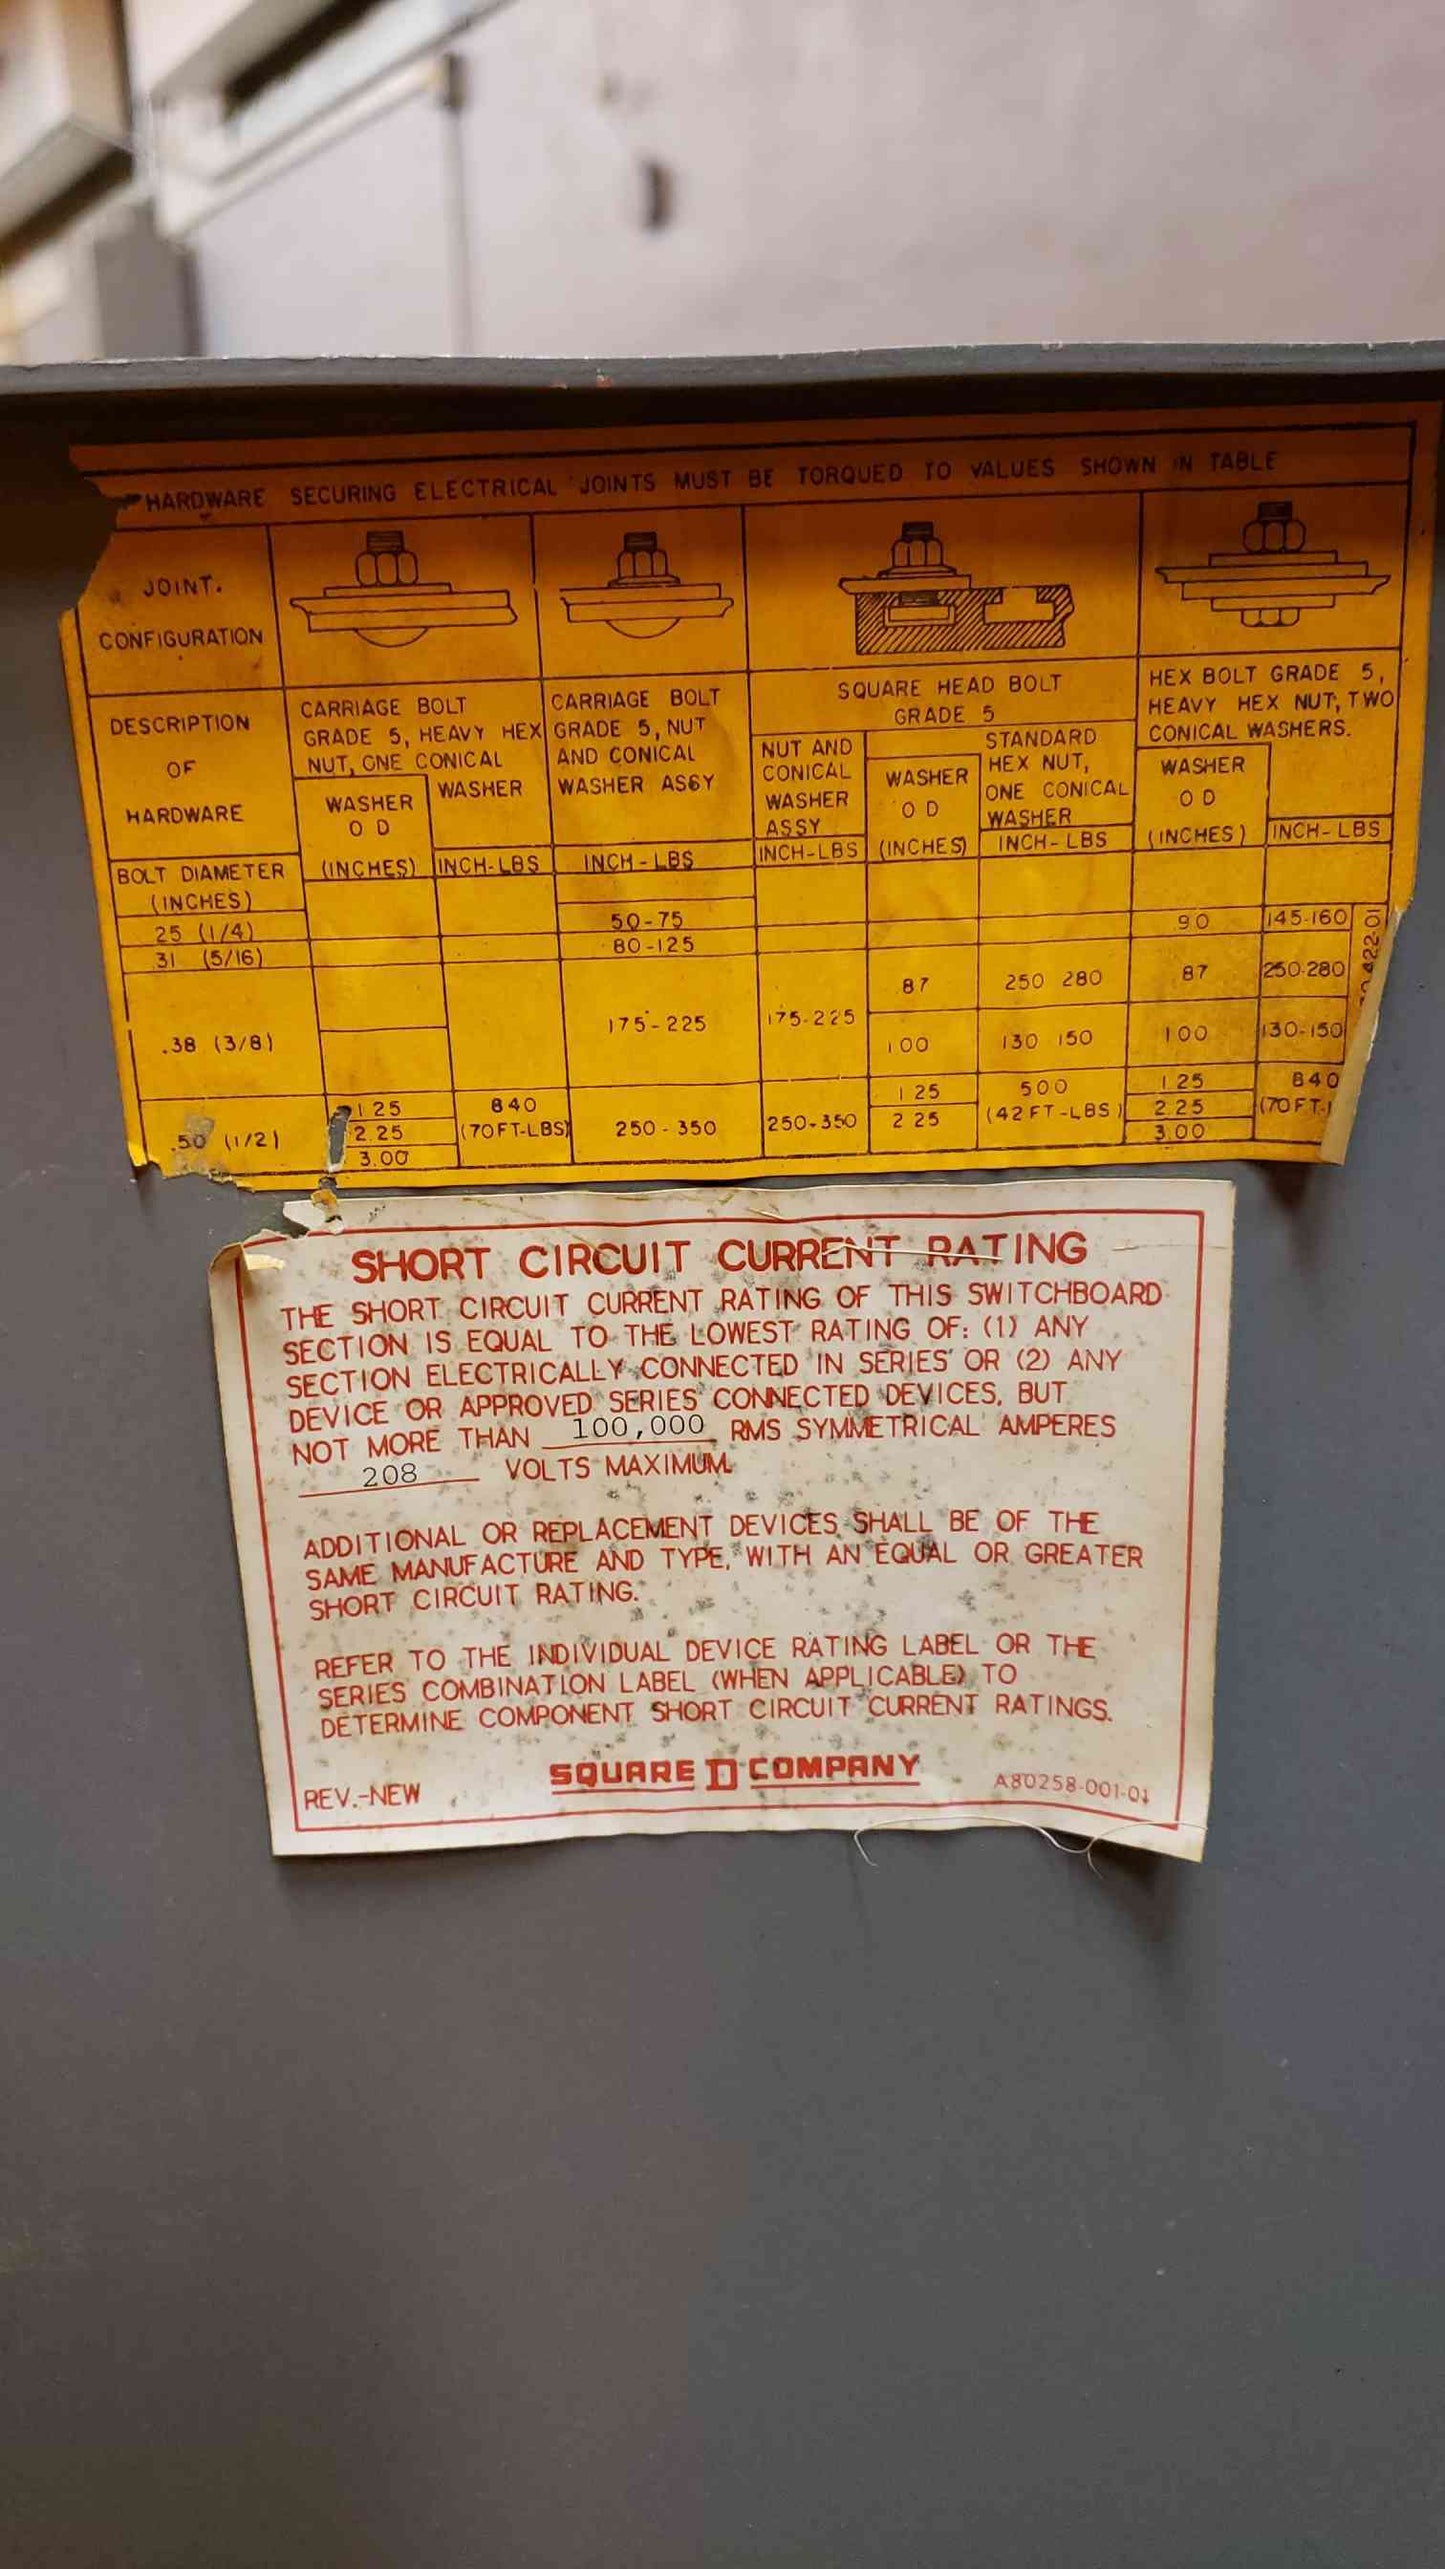 HARDWARE SECURING ELECTRICAL JOINTS MUST BE TORQUED TO VALUES SHOWN IN TABLE
JOINT.
CONFIGURATION
DESCRIPTION
OF
HARDWARE
BOLT DIAMETER
(INCHES)
CARRIAGE BOLT
GRADE 5, HEAVY HEX
NUT, ONE CONICAL
WASHER
WASHER
O D
(INCHES)
INCH-LBS
CARRIAGE BOLT
GRADE 5, NUT
AND CONICAL
WASHER ASSY
INCH-LBS
SQUARE HEAD BOLT
GRADE 5
NUT AND
CONICAL
WASHER
ASSY
INCH-LBS
WASHER
O D
(INCHES)
STANDARD
HEX NUT,
ONE CONICAL
WASHER
INCH-LBS
HEX BOLT GRADE 5,
HEAVY HEX NUT, TWO
CONICAL WASHERS.
WASHER
O D
(INCHES)
INCH-LBS
25 (1/4) 50-75 90 145-160
31 (5/16) 80-125
.38 (3/8) 175-225 175-225
87 250 280 87 250-280
100 130 150 100 130-150
.50 (1/2) 250-350 250-350
1 25 840 1 25 500 1 25 840
2.25 (70FT-LBS) 2 25 (42FT-LBS) 2 25 (70FT-
3.00 3 00
422-01
SHORT CIRCUIT CURRENT RATING
THE SHORT CIRCUIT CURRENT RATING OF THIS SWITCHBOARD
SECTION IS EQUAL TO THE LOWEST RATING OF: (1) ANY
SECTION ELECTRICALLY CONNECTED IN SERIES OR (2) ANY
DEVICE OR APPROVED SERIES CONNECTED DEVICES, BUT
NOT MORE THAN 100,000 RMS SYMMETRICAL AMPERES
208 VOLTS MAXIMUM.
ADDITIONAL OR REPLACEMENT DEVICES SHALL BE OF THE
SAME MANUFACTURE AND TYPE, WITH AN EQUAL OR GREATER
SHORT CIRCUIT RATING.
REFER TO THE INDIVIDUAL DEVICE RATING LABEL OR THE
SERIES COMBINATION LABEL (WHEN APPLICABLE) TO
DETERMINE COMPONENT SHORT CIRCUIT CURRENT RATINGS.
SQUARE D COMPANY
REV.-NEW A80258-001-01